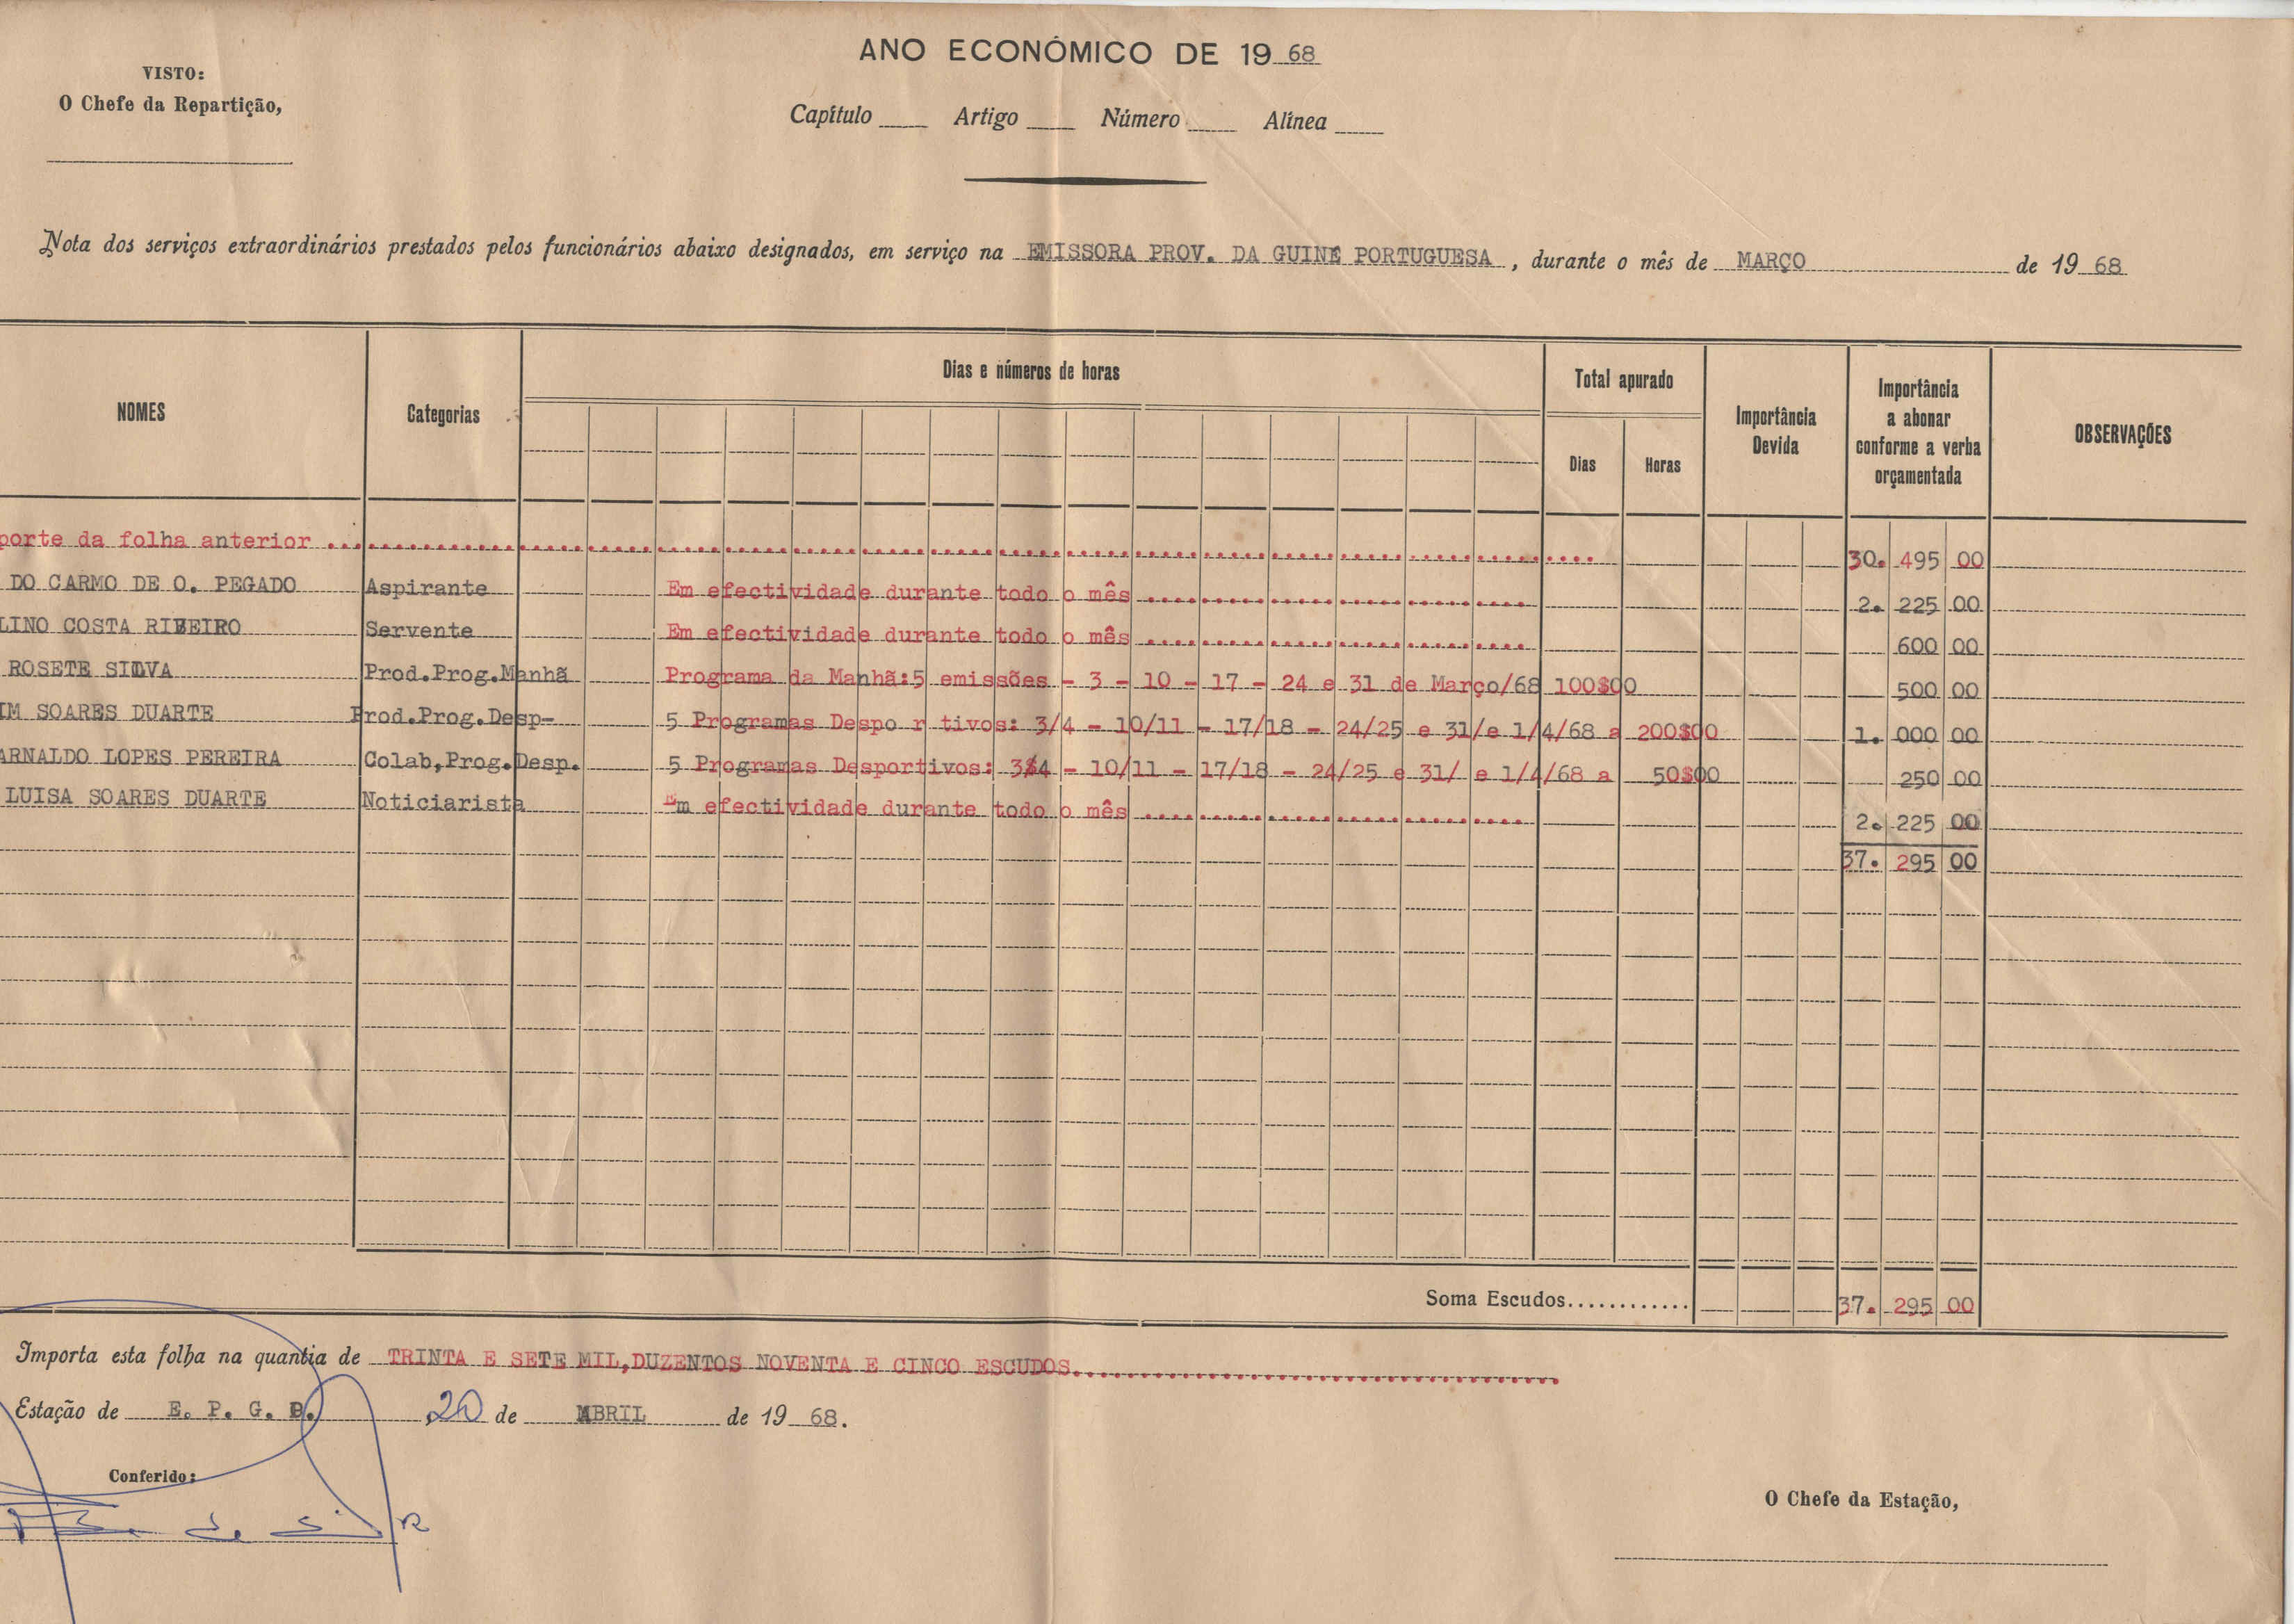 ANO ECONÓMICO DE 19 68
VISTO:
O Chefe da Repartição,
Capítulo Artigo Número Alínea
Nota dos serviços extraordinários prestados pelos funcionários abaixo designados, em serviço na EMISSORA PROV. DA GUINÉ PORTUGUESA, durante o mês de MARÇO de 19 68
NOMES Categorias Dias e números de horas Total apurado Dias Horas Importância Devida Importância a abonar conforme a verba orçamentada OBSERVAÇÕES
porte da folha anterior .................... 30. 495 00
DO CARMO DE O. PEGADO Aspirante Em efectividade durante todo o mês .................... 2. 225 00
LINO COSTA RIBEIRO Servente Em efectividade durante todo o mês .................... 600 00
ROSETE SILVA Prod.Prog.Manhã Programa da Manhã:5 emissões - 3 - 10 - 17 - 24 e 31 de Março/68 100$00 500 00
IM SOARES DUARTE Prod.Prog.Desp- 5 Programas Despo r tivos: 3/4 - 10/11 - 17/18 - 24/25 e 31/e 1/4/68 a 200$00 1. 000 00
ARNALDO LOPES PEREIRA Colab,Prog.Desp. 5 Programas Desportivos: 3/4 - 10/11 - 17/18 - 24/25 e 31/ e 1/4/68 a 50$00 250 00
LUISA SOARES DUARTE Noticiarista Em efectividade durante todo o mês .................... 2. 225 00
37. 295 00
Soma Escudos............ 37. 295 00
Importa esta folha na quantia de TRINTA E SETE MIL,DUZENTOS NOVENTA E CINCO ESCUDOS....................
Estação de E. P. G. P. 20 de ABRIL de 19 68.
Conferido:
O Chefe da Estação,